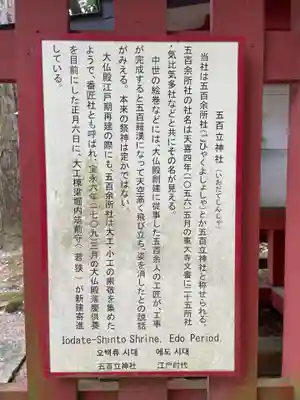 五百立神社（いおだてじんじゃ）
当社は五百余所社（ごひゃくよしょしゃ）とか五百立神社と称せられる。
五百余所社の社名は天喜四年（一〇五六）五月の東大寺文書に二十五所社
・気比気多社などと共にその名が見える。
中世の絵巻などには、大仏殿創建に従事した五百余人の工匠が、工事
が完成すると五百羅漢になって天空高く飛び立ち、姿を消したとの説話
がみえる。本来の祭神は定かではない。
大仏殿江戸期再建の際にも、五百余所社は大工・小工の崇敬を集めた
ようで、番匠社とも呼ばれ、宝永六年（一七〇九）三月の大仏殿落慶供養
を目前にした正月六日に、大工棟梁堀内筑前守（若狭）が新建寄進
している。
Iodate-Shinto Shrine, Edo Period
오백류 시대 에도 시대
五百立神社 江戸时代